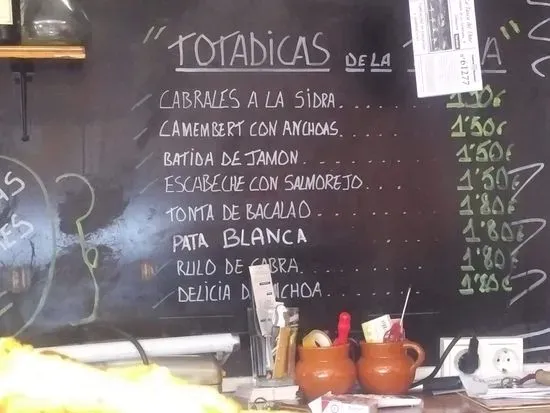 "TOTADICAS DE LA A"
CABRALES A LA SIDRA.......... 1'50€
CAMEMBERT CON ANCHOAS........ 1'50€
BATIDA DE JAMON.......... 1'50€
ESCABECHE CON SALMOREJO... 1'50€
TONTA DE BACALAO.......... 1'80€
PATA BLANCA 1'80€
RULO DE CABRA.......... 1'80€
DELICIA DE ANCHOA.......... 1'80€
AS
ES
61277